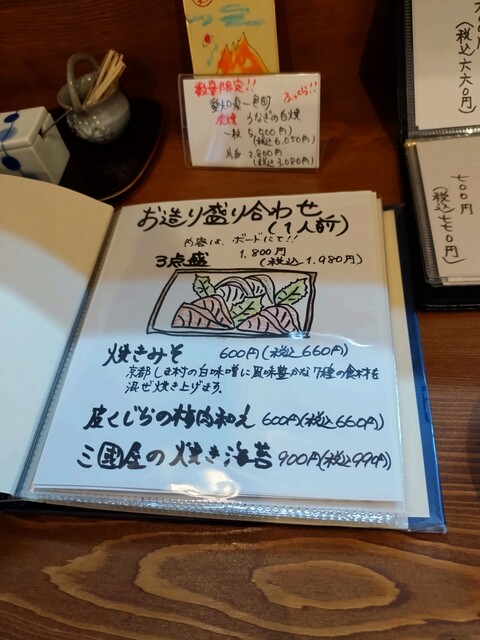 数量限定!!
愛知県一色町
ふっくら!!
炭焼 うなぎの白焼
一枚 5,500円
(税込 6,050円)
片身 2,800円
(税込 3,080円)
お造り盛り合わせ
(1人前)
内容は、ボードにて!!
3点盛 1,800円
(税込 1,980円)
焼きみそ 600円(税込 660円)
京都しま村の白味噌に風味豊かな7種の食材を
混ぜ焼き上げます。
皮くじらの梅肉和え 600円(税込 660円)
三國屋の焼き海苔 900円(税込 990円)
(税込六六〇円)
七〇〇円
(税込七七〇円)